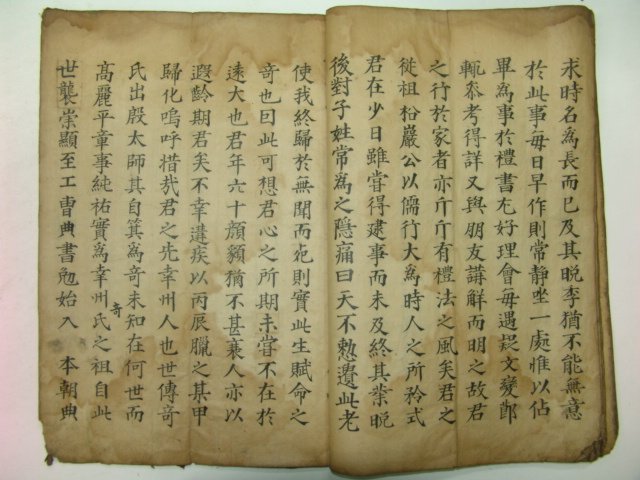 求時名爲長而已及其晩李猶不能無意
於此事每日早作則常靜坐一處惟以佔
畢爲事於禮書尤好理會每遇疑文變節
輒叅考得詳又與朋友講解而明之故君
之行於家者亦斤斤有禮法之風矣君之
從祖松巖公以儒行大爲時人之所矜式
君在少日雖嘗得建事而未及終其業晩
後對子姓常爲之隱痛曰天不憗遺此老
使我終歸於無聞而死則實此生賦命之
奇也因此可想君心之所期未嘗不在於
遠大也君年六十顔貌猶不甚衰人亦以
遐齡期君矣不幸遘疾以丙辰臘之某甲
歸化嗚呼惜哉君之先幸州人也世傳奇
氏出殷太師其自箕爲奇未知在何世而
高麗平章事純祐實爲幸州奇氏之祖自此
世襲崇顯至工曹典書勉始入 本朝典